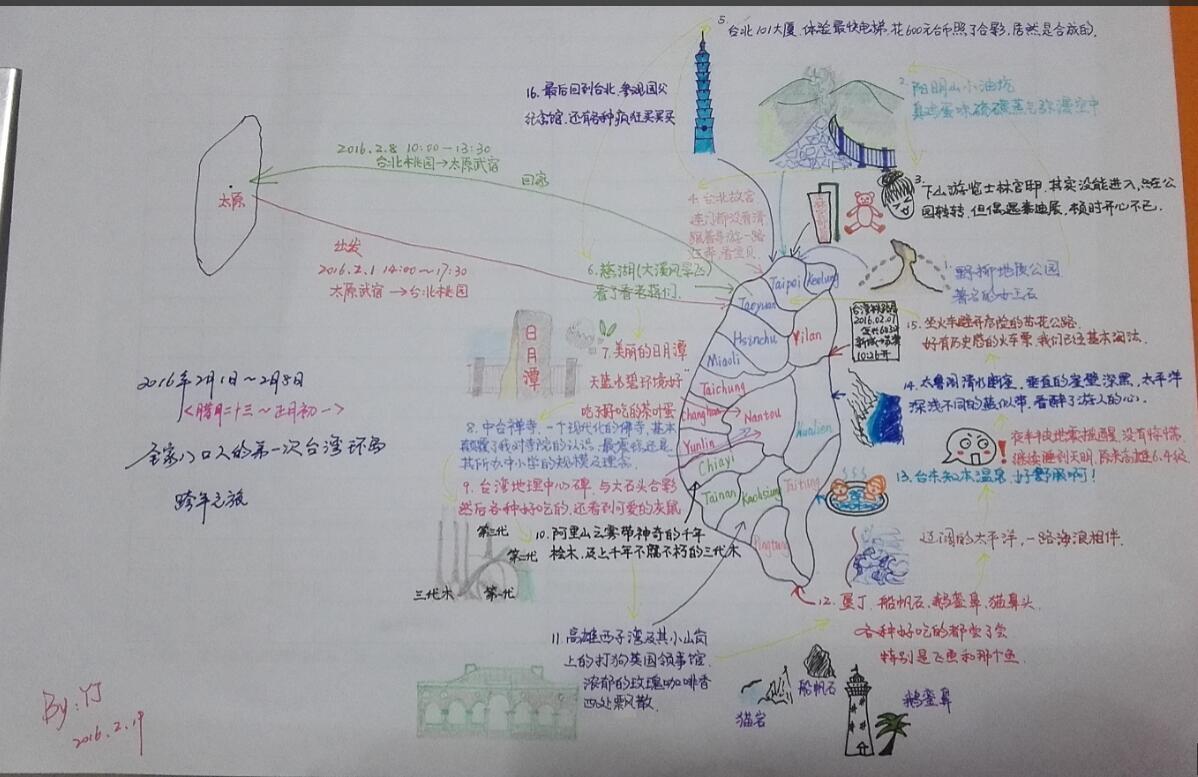 5. 台北101大厦.体验最快电梯,花600元台币照了合影.居然是合成的.
16. 最后回到台北,参观国父
纪念馆.还有各种疯狂买买买
2. 阳明山小油坑
臭鸡蛋味硫磺蒸气弥漫空中
2016.2.8 10:00-13:30
台北桃园→太原武宿
回家
太原
出发
2016.2.1 14:00~17:30
太原武宿→台北桃园
3. 下山游览士林官邸.其实没能进入,只在公
园转转.但偶遇泰迪展.顿时开心不已.
4. 台北故宫
连门都没看清
跟着导游一路
狂奔,看宝贝.
6. 慈湖(大溪风景区)
看了看老蒋们.
1. 野柳地质公园
著名的女王石
Taipei
Keelung
Taoyuan
Hsinchu
Yilan
Miaoli
Taichung
Changhua
Nantou
Hualien
Yunlin
Chiayi
Tainan
Kaohsiung
Taitung
Pingtung
2016.02.07
10:26开
15. 坐火车避开危险的苏花公路.
好有历史感的火车票,我们已经基本淘汰.
日月潭
7. 美丽的日月潭
天蓝水碧环境好
吃了好吃的茶叶蛋
14. 太鲁阁清水断崖.垂直的崖壁深黑,太平洋
深浅不同的蓝色带,看醉了游人的心.
2016年2月1日~2月8日
<腊月二十三~正月初一>
全家八口人的第一次台湾环岛
跨年之旅
8. 中台禅寺.一个现代化的佛寺.基本
颠覆了我对寺院的认识.最震撼还是
其所办中小学的规模及理念.
夜半被地震摇醒.没有惊慌.
继续睡到天明.原来高雄6.4级.
13. 台东知本温泉.好舒服啊!
9. 台湾地理中心碑.与大石头合影
然后各种好吃的.还看到可爱的灰鼠
10. 阿里山云雾带神奇的千年
桧木.及上千年不腐不朽的三代木
第三代
第二代
三代木
第一代
辽阔的太平洋.一路海浪相伴.
12. 垦丁.船帆石.鹅銮鼻.猫鼻头.
各种好吃的都尝了尝
特别是飞鱼和那个鱼.
11. 高雄西子湾及其小山岗
上的打狗英国领事馆.
浓郁的玫瑰咖啡香
四处飘散.
船帆石
猫岩
鹅銮鼻
By:竹
2016.2.19